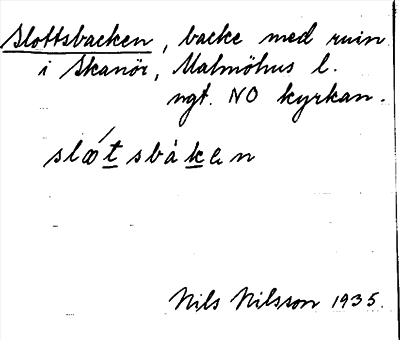 Slottsbacken, backe med ruin
i Skanör, Malmöhus l.
ngt. NO kyrkan.
slǿtsbàken
Nils Nilsson 1935.